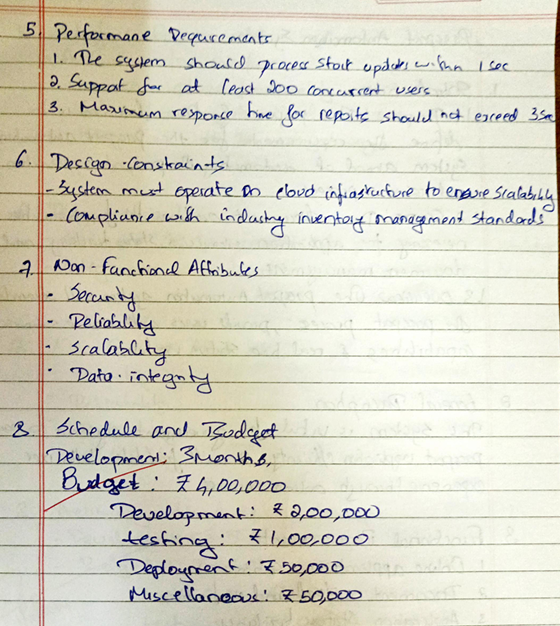 5. Performane Requrements
1. The system should process stock updates within 1 sec
2. Support for at least 200 concurrent users
3. Maximum responce time for reports should not exceed 3sec
6. Design constraints
- System must operate on cloud infrastructure to ensure scalability
- Compliance with industry inventory management standards
7. Non-Functional Attributes
- Security
- Reliability
- Scalability
- Data-integrity
8. Schedule and Budget
Development: 3Months,
Budget: ₹4,00,000
Development: ₹2,00,000
testing: ₹1,00,000
Deployment: ₹50,000
Miscellaneous: ₹50,000